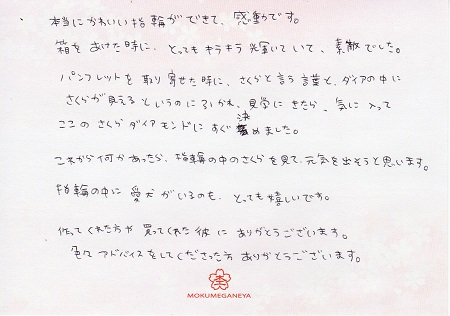 本当にかわいい指輪ができて、感動です。
箱をあけた時に、とってもキラキラ輝いていて、素敵でした。
パンフレットを取り寄せた時に、さくらと言う言葉と、ダイアの中に
さくらが見えるというのにひかれ、見学にきたら、気に入って
ここのさくらダイアモンドにすぐ決めました。
これから何かあったら、指輪の中のさくらを見て、元気を出そうと思います。
指輪の中に愛犬がいるのも、とっても嬉しいです。
作ってくれた方や買ってくれた彼にありがとうございます。
色々アドバイスをしてくださった方ありがとうございます。
MOKUMEGANEYA